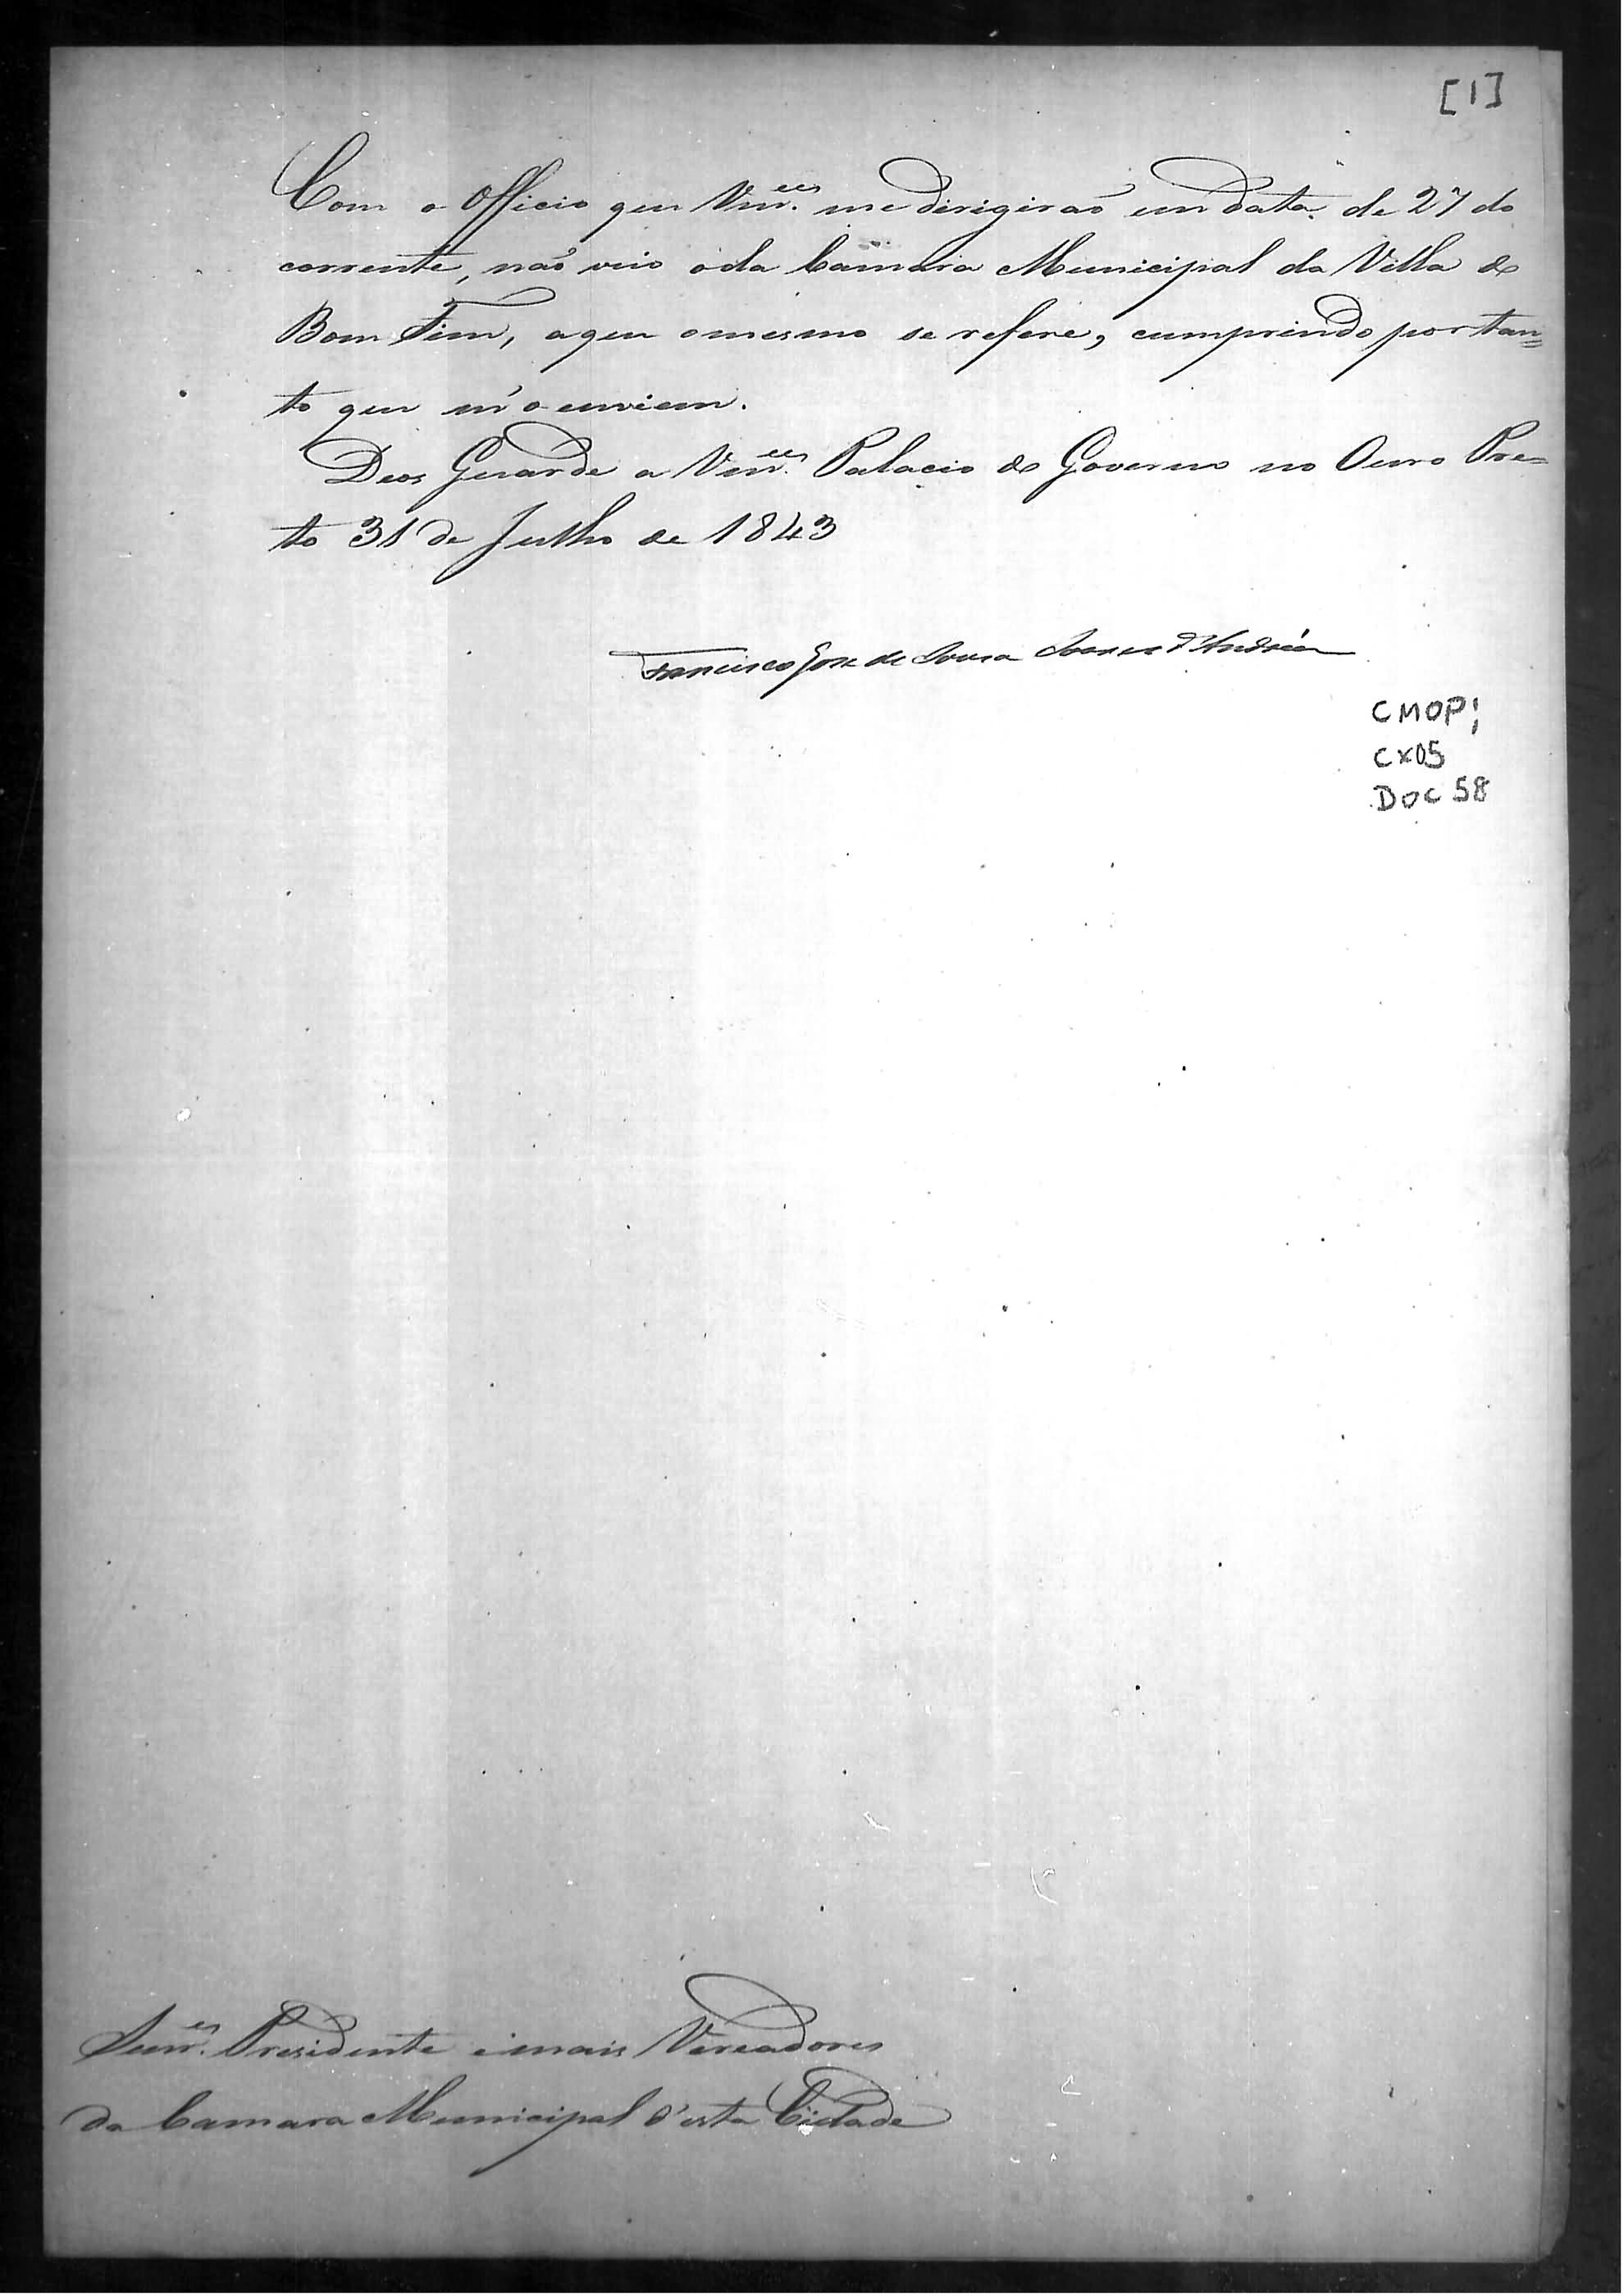 [1]
Com o Officio que Vm.ces me dirigirão em data de 27 do
corrente, não veio o da Camara Municipal da Villa do
Bom Fim, a que o mesmo se refere, cumprindo por tan=
to que m'o enviem.
Deos Guarde a Vm.ces Palacio do Governo no Ouro Pre=
to 31 de Julho de 1843
Francisco Jose de Sousa Soares d'Andréa
CMOP;
CX05
DOC 58
Senr.es Presidente e mais Vereadores
da Camara Municipal d'esta Cidade